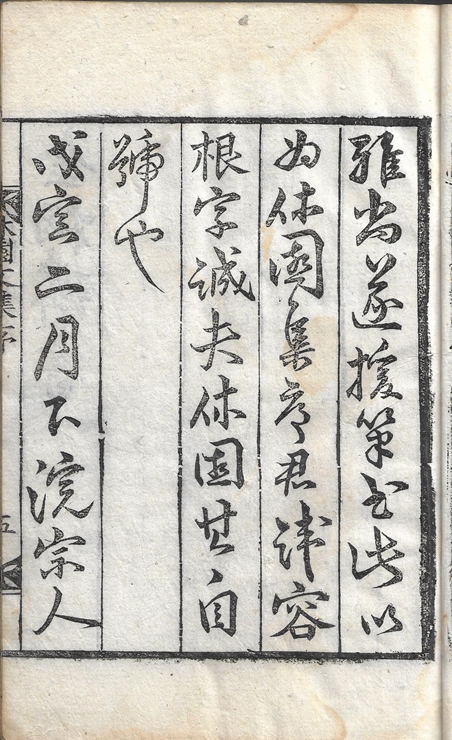 雅尚遂援筆書此以
為休園集序君諱容
根字誠夫休園其自
號也
戊寅二月下浣宗人
休園文集序
五